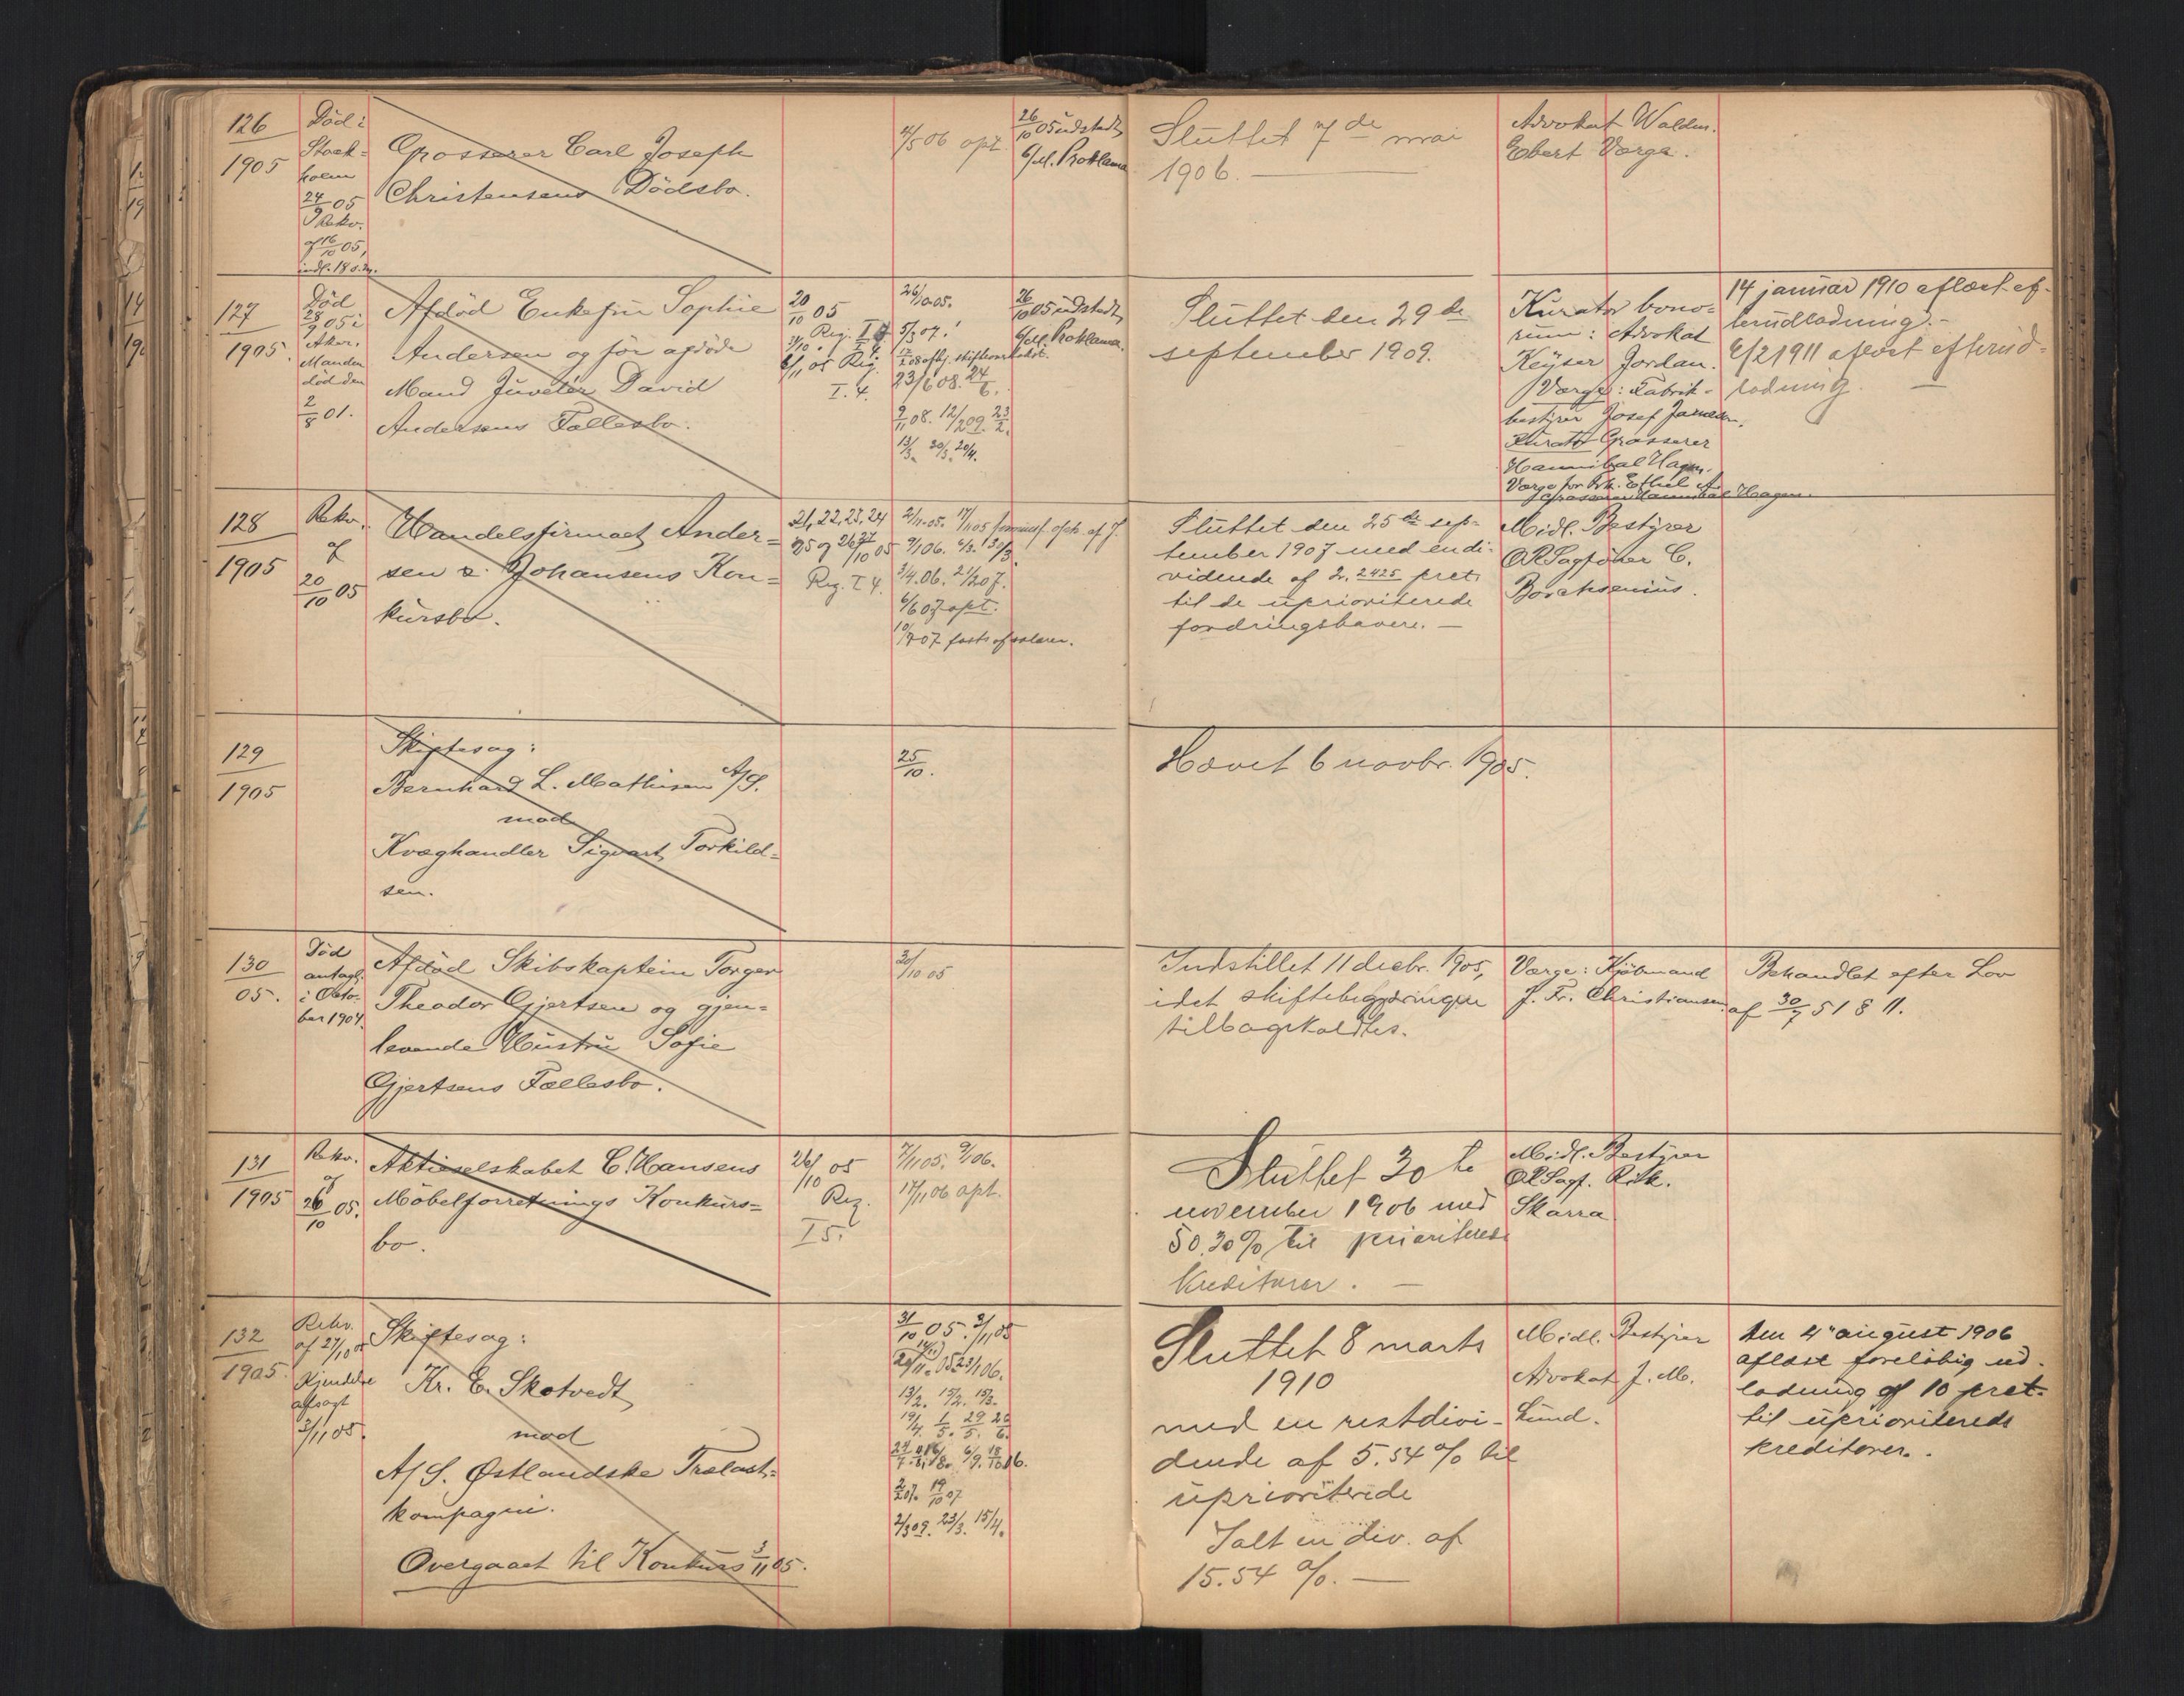 126
1905
Död i
Stock=
holm
24/9 05
Rekv.
af 16/10 05,
indl. 18 s. m.
Grosserer Carl Joseph
Christensens Dödsbo.
4/5 06 opt.
26/10 05 udstedt
6/M. Proklama
Sluttet 7de mai
1906.
Advokat Waldm.
Ebert Værge.
127
1905.
Död
28/9 05 i
Aker.
Manden
död den
2/8 01.
Afdöd Enkefru Sophie
Andersen og för afdöde
Mand Juvelér David
Andersens Fællesbo.
20/10 05
Reg. I 4.
31/10.
6/11 05 Reg.
I. 4.
26/10 05.
5/3 07.
23/6 08. 24/6.
9/11 08. 12/2 09. 23/2.
13/3. 30/3. 20/4.
26/10 05 udstedt
6/M. Proklama.
Sluttet den 29de
september 1909.
Kurator bono=
rum: Advokat
Keyser Jordan.
Værge: Fabrik-
bestyrer Josef
Kurator Grosserer
Hannibal Hagen.
Værge for Frk. Ethel A.
Grosserer Hannibal Hagen.
14 januar 1910 aflæst ef-
terudlodning.-
6/2 1911 aflæst efterud-
lodning.
128
1905
Rekv.
af
20/10 05
Handelsfirmaet Ander=
sen & Johansens Kon=
kursbo.
21, 22, 23, 24
25 og 26, 27/10 05
Reg. I 4.
2/11. 05. 17/11 05
9/1 06. 6/3. 30/3.
3/4. 06. 21/2 07.
6/6 07 opt.
10/9 07 fasts. af salærer.
Sluttet den 25de sep-
tember 1907 med en di-
vidende af 2.2425 prct.
til de uprioriterede
fordringshavere. -
Midl. Bestyrer
ORSagförer C.
Borchsenius.
129
1905
Skiftesag:
Bernhard L. Mathisen A/S.
mod
Kvæghandler Sigvart Torkild=
sen.
25/10.
Hævet 6 novbr. 1905.
130
05.
Död
antagl.
i Octo-
ber 1904.
Afdöd Skibskaptein Torger
Theodor Gjertsen og gjen=
levende Hustru Sofie
Gjertsens Fællesbo.
30/10 05
Indstillet 11 decbr. 1905,
idet skiftebegjæringen
tilbagekaldtes.
Værge: Kjöbmand
J. Fr. Christiansen
Behandlet efter Lov
af 30/7 51 § 11.
131
1905
Rekv.
af
26/10 05.
Aktieselskabet C. Hansens
Möbelforretnings Konkurs=
bo.
26/10 05
Reg.
I 5.
7/11 05. 9/1 06.
17/11 06 opt.
Sluttet 30te
november 1906 med
50.30% til prioriterede
Kreditorer. -
Midl. Bestyrer
ORSagf. Rik.
Skarra
132
1905.
Rekv.
af 27/10 05
Kjendelse
afsagt
3/11 05.
Skiftesag:
Kr. E. Skotvedt
mod
A/S. Østlandske Trælast=
kompagni.
Overgaaet til Konkurs 3/11 05.
31/10 05. 3/11 05
20/11. 05 23/1 06.
13/2. 15/2. 15/3.
19/4. 1/5. 29/5. 26/6.
2/2 07. 19/10 07
2/3 09. 23/3. 15/4.
Sluttet 8 marts
1910
med en restdivi-
dende af 5.54 % til
uprioriterede
Ialt en div. af
15.54 %. -
Midl. Bestyrer
Advokat J. M.
Lund.
den 4de august 1906
aflæst foreløbig ud-
lodning af 10 prct.
til uprioriterede
kreditorer.